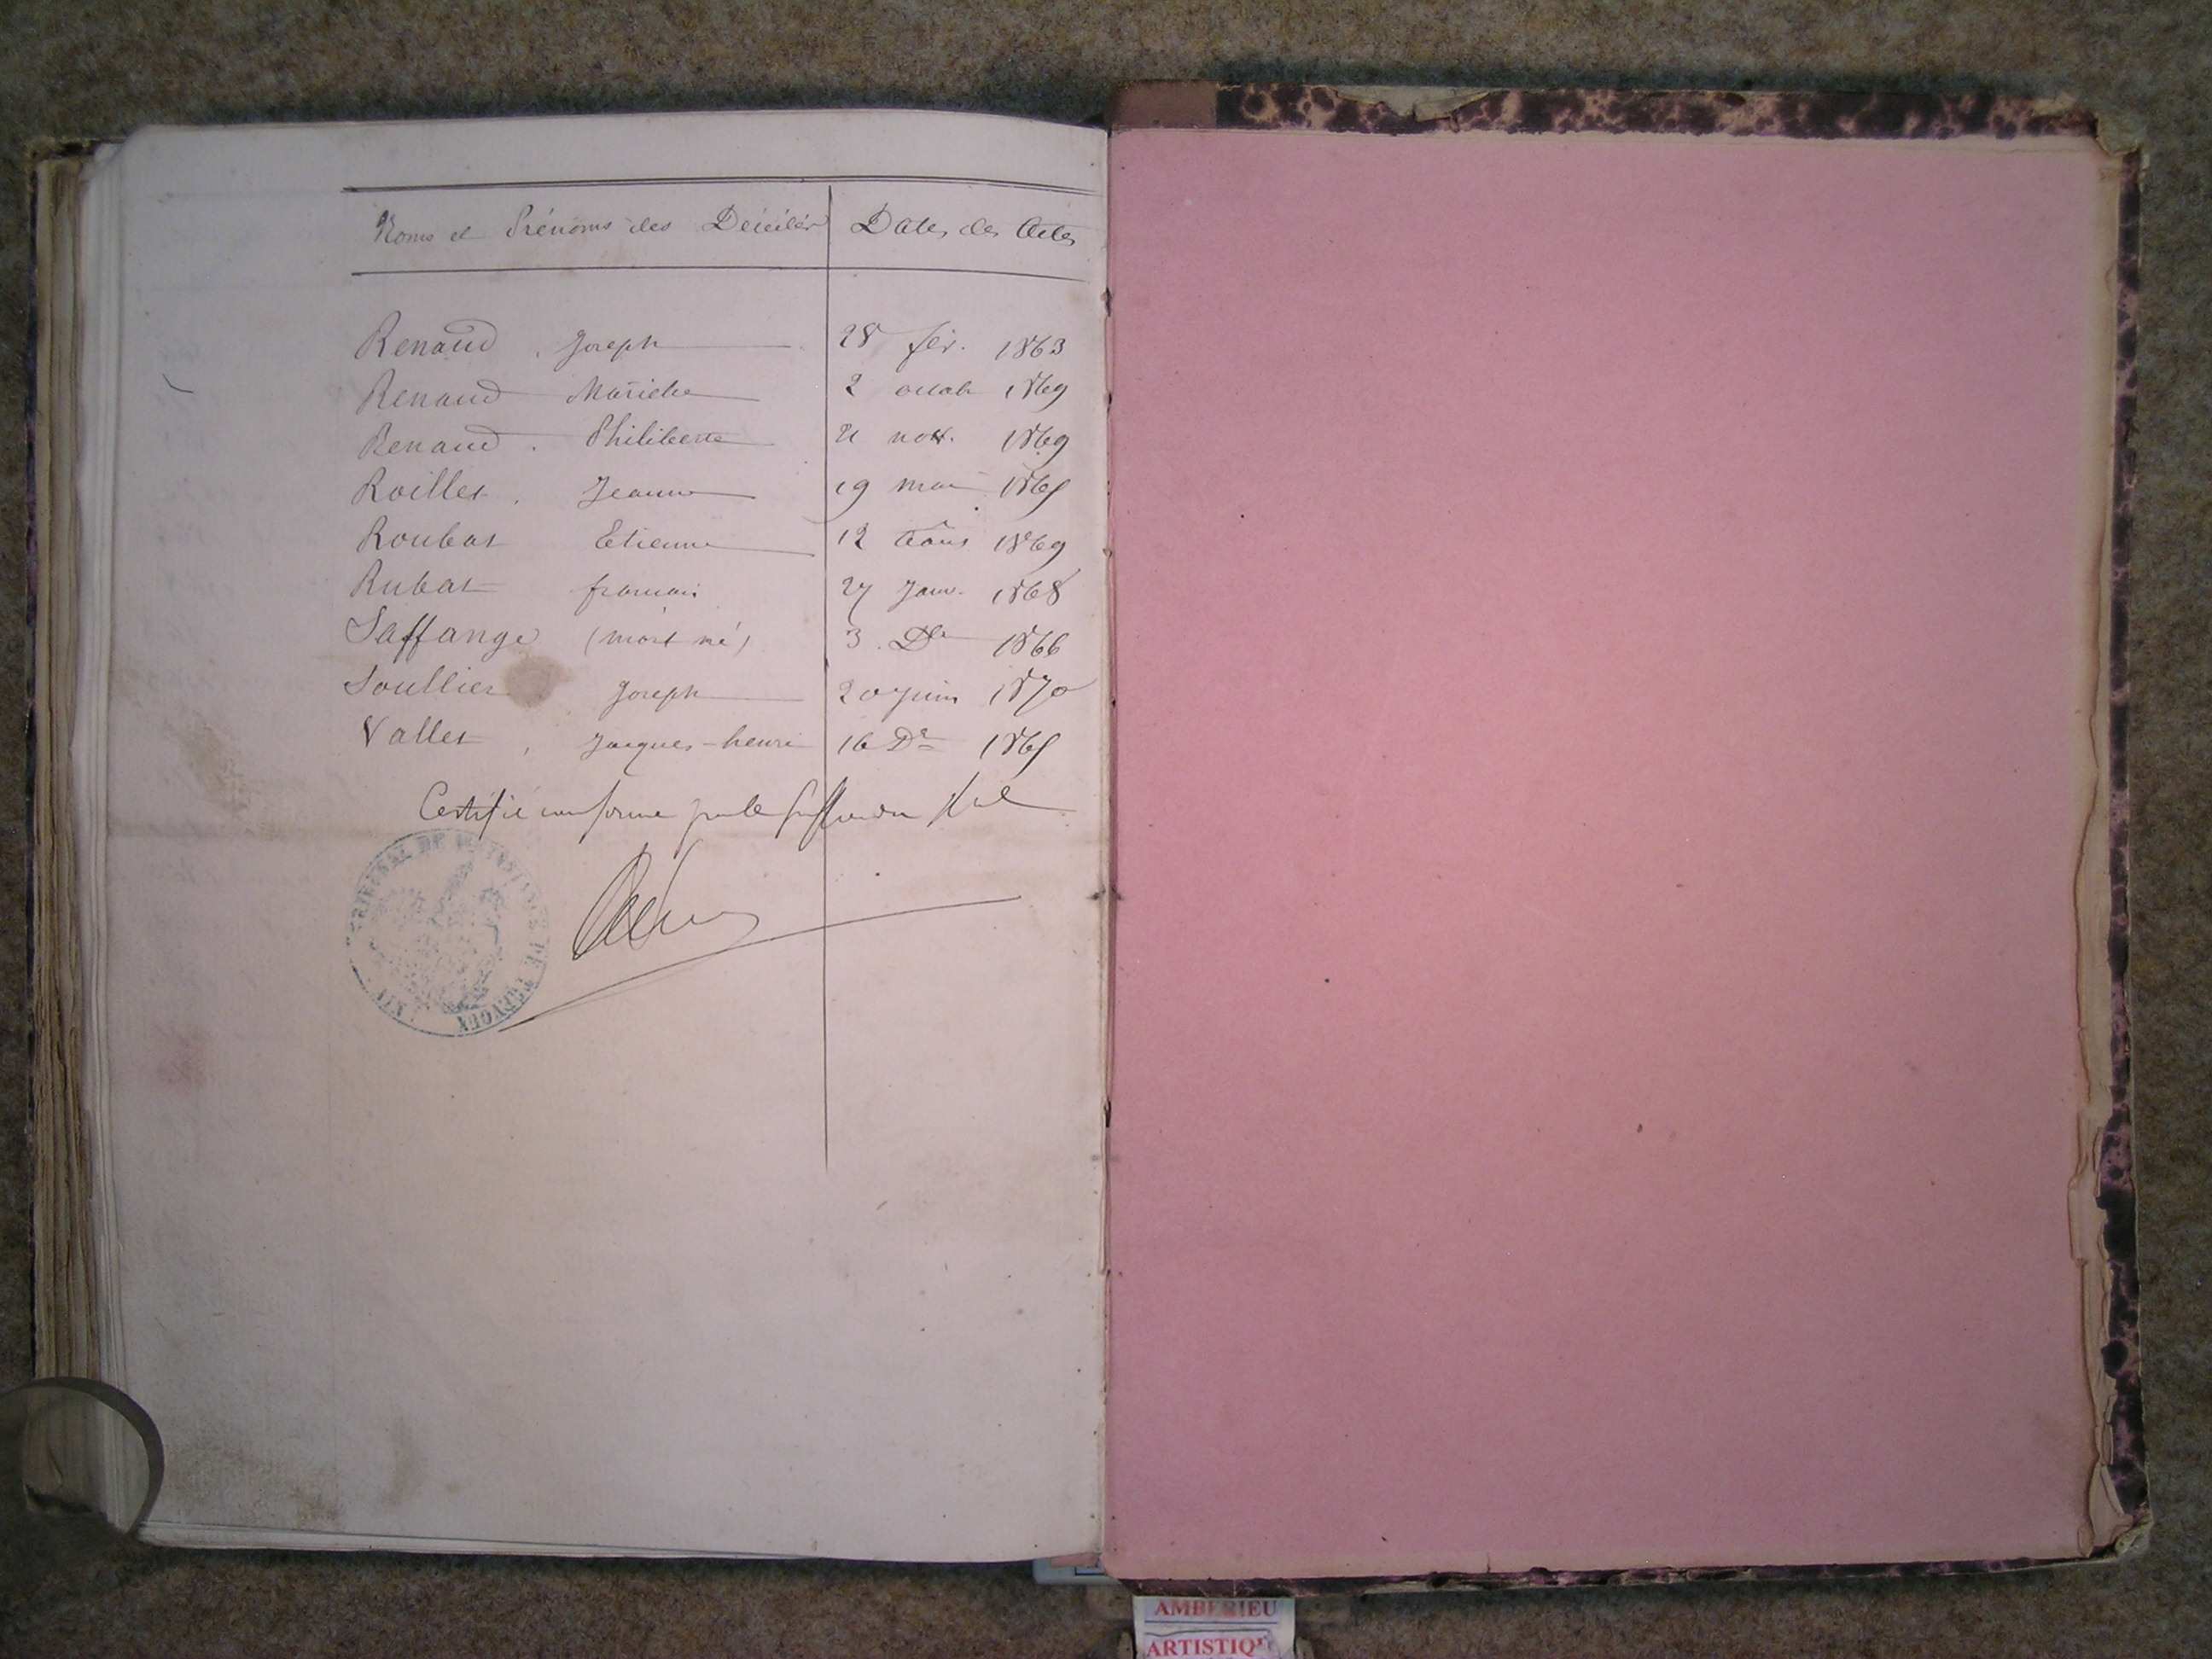 Noms et Prénoms des Décédés Dates des Actes
Renaud Joseph 28 fév. 1863
Renaud Mariette 2 octob 1869
Renaud Philiberte 21 nov. 1869
Roillet Jeanne 19 mai 1865
Roubat Etienne 12 Août 1869
Rubat francois 27 Janv. 1868
Saffange (mort né) 3 Dbre 1866
Soullier Joseph 20 juin 1870
Vallet Jacques-henri 16 Dre 1865
Certifié conforme par le
TRIBUNAL DE 1RE INSTANCE DE TREVOUX
AIN
AMBERIEU
ARTISTIQ